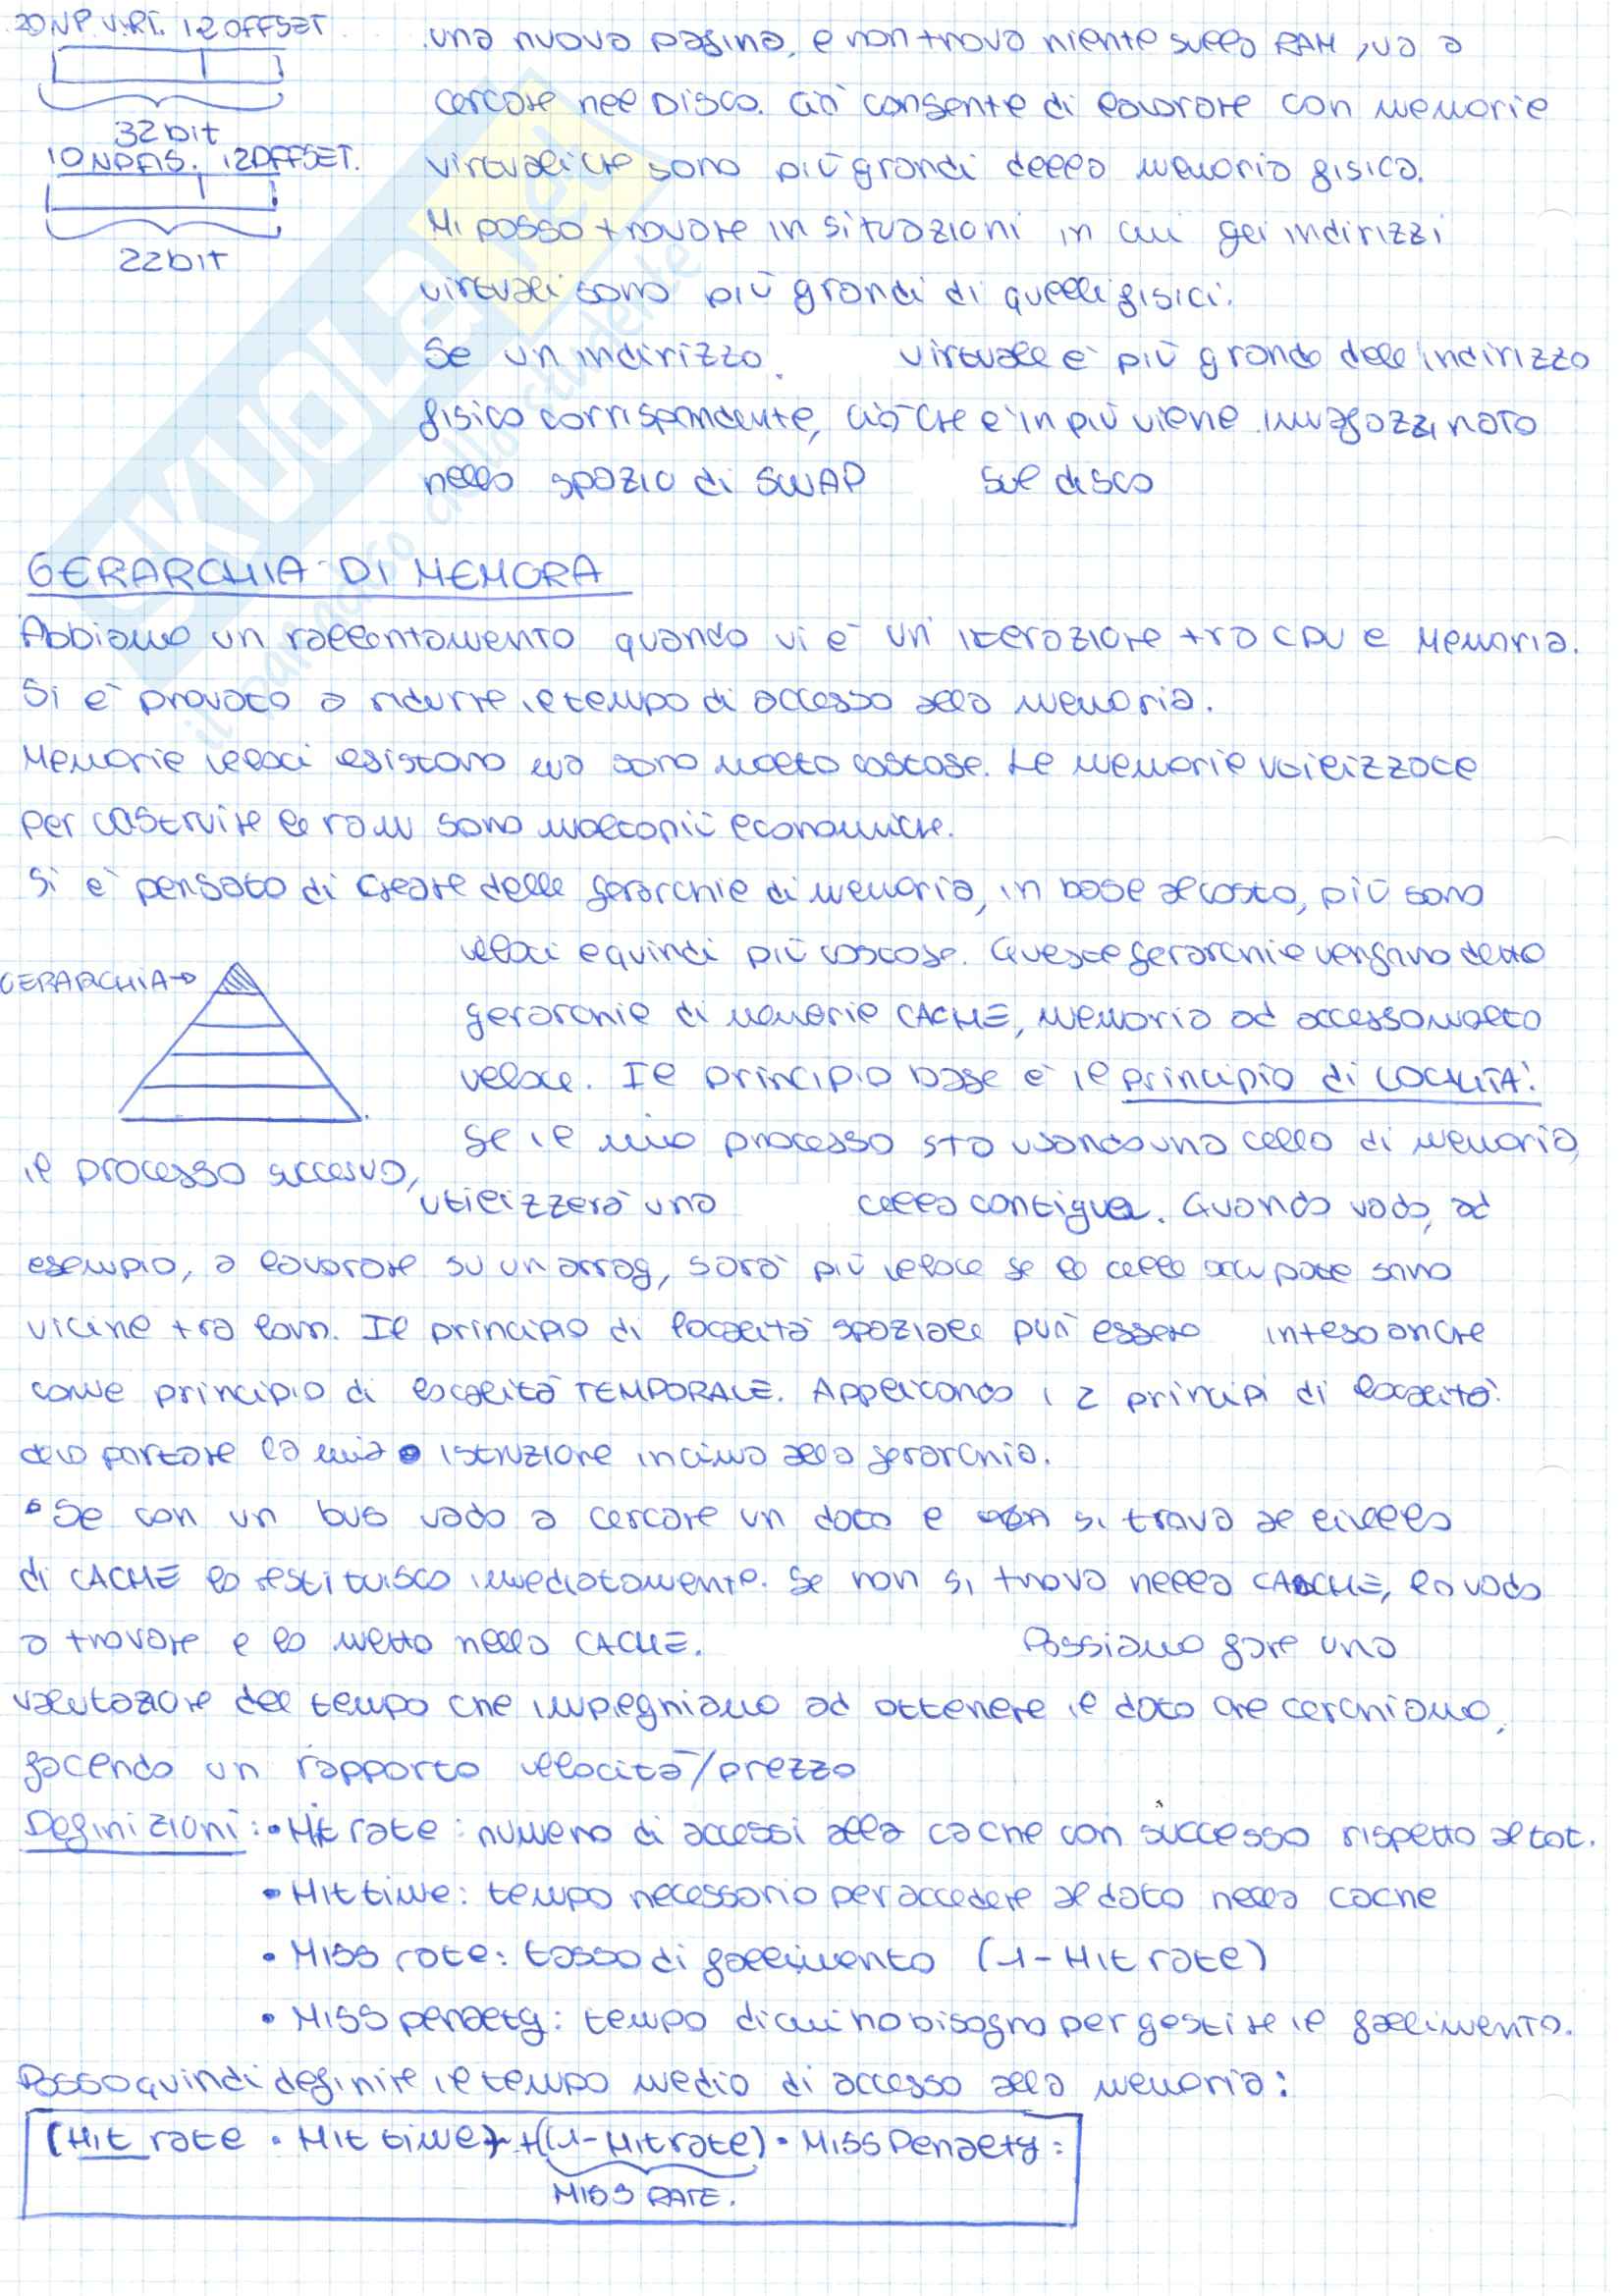 20 NP VIRT. 12 OFFSET
32 bit
10 NPFIS. 12 OFFSET.
22 bit
una nuova pagina, e non trova niente sulla RAM, va a
cercare nel DISCO. Ciò consente di lavorare con memorie
virtuali che sono più grandi della memoria fisica.
Mi posso trovare in situazioni in cui gli indirizzi
virtuali sono più grandi di quelli fisici.
Se un indirizzo virtuale è più grande dell'indirizzo
fisico corrispondente, ciò che è in più viene immagazzinato
nello spazio di SWAP sul disco
SKUOLA.net
il paradiso dello studente
GERARCHIA DI MEMORA
Abbiamo un rallentamento quando vi è un'iterazione tra CPU e Memoria.
Si è provato a ridurre il tempo di accesso alla memoria.
Memorie veloci esistono ma sono molto costose. Le memorie utilizzate
per costruire la ram sono molto più economiche.
Si è pensato di creare delle gerarchie di memoria, in base al costo, più sono
veloci e quindi più costose. Queste gerarchie vengono dette
GERARCHIA→
gerarchie di memorie CACHE, memoria ad accesso molto
veloce. Il principio base è il principio di LOCALITA':
Se il mio processo sta usando una cella di memoria,
il processo successivo, utilizzerà una cella contigua. Quando vado, ad
esempio, a lavorare su un array, sarà più veloce se le celle occupate sono
vicine tra loro. Il principio di località spaziale può essere inteso anche
come principio di località TEMPORALE. Applicando i 2 principi di località:
devo portare la mia istruzione in cima alla gerarchia.
• Se con un bus vado a cercare un dato e si trova al livello
di CACHE lo restituisco immediatamente. Se non si trova nella CACHE, lo vado
a trovare e lo metto nella CACHE. Possiamo fare una
valutazione del tempo che impegniamo ad ottenere il dato che cerchiamo,
facendo un rapporto velocità/prezzo
Definizioni: • Hit rate: numero di accessi alla cache con successo rispetto al tot.
• Hit time: tempo necessario per accedere al dato nella cache
• Miss rate: tasso di fallimento (1 - Hit rate)
• Miss penalty: tempo di cui ho bisogno per gestire il fallimento.
Posso quindi definire il tempo medio di accesso alla memoria:
(Hit rate · Hit time) + ((1 - Hit rate) · Miss Penalty:
MISS RATE.